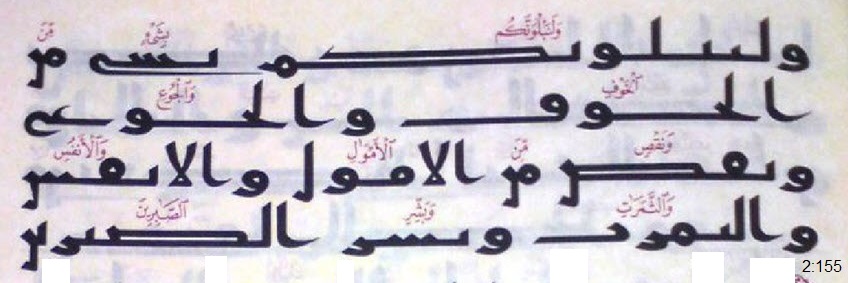 وَلَنَبْلُوَنَّكُم بِشَىْءٍ مِّنَ
ولنبلونكم بشى من
ٱلْخَوْفِ وَٱلْجُوعِ
الخوف والجوع
وَنَقْصٍ مِّنَ ٱلْأَمْوَٰلِ وَٱلْأَنفُسِ
ونقص من الامول والانفس
وَٱلثَّمَرَٰتِ وَبَشِّرِ ٱلصَّٰبِرِينَ
والثمرت وبشر الصبرين
2:155